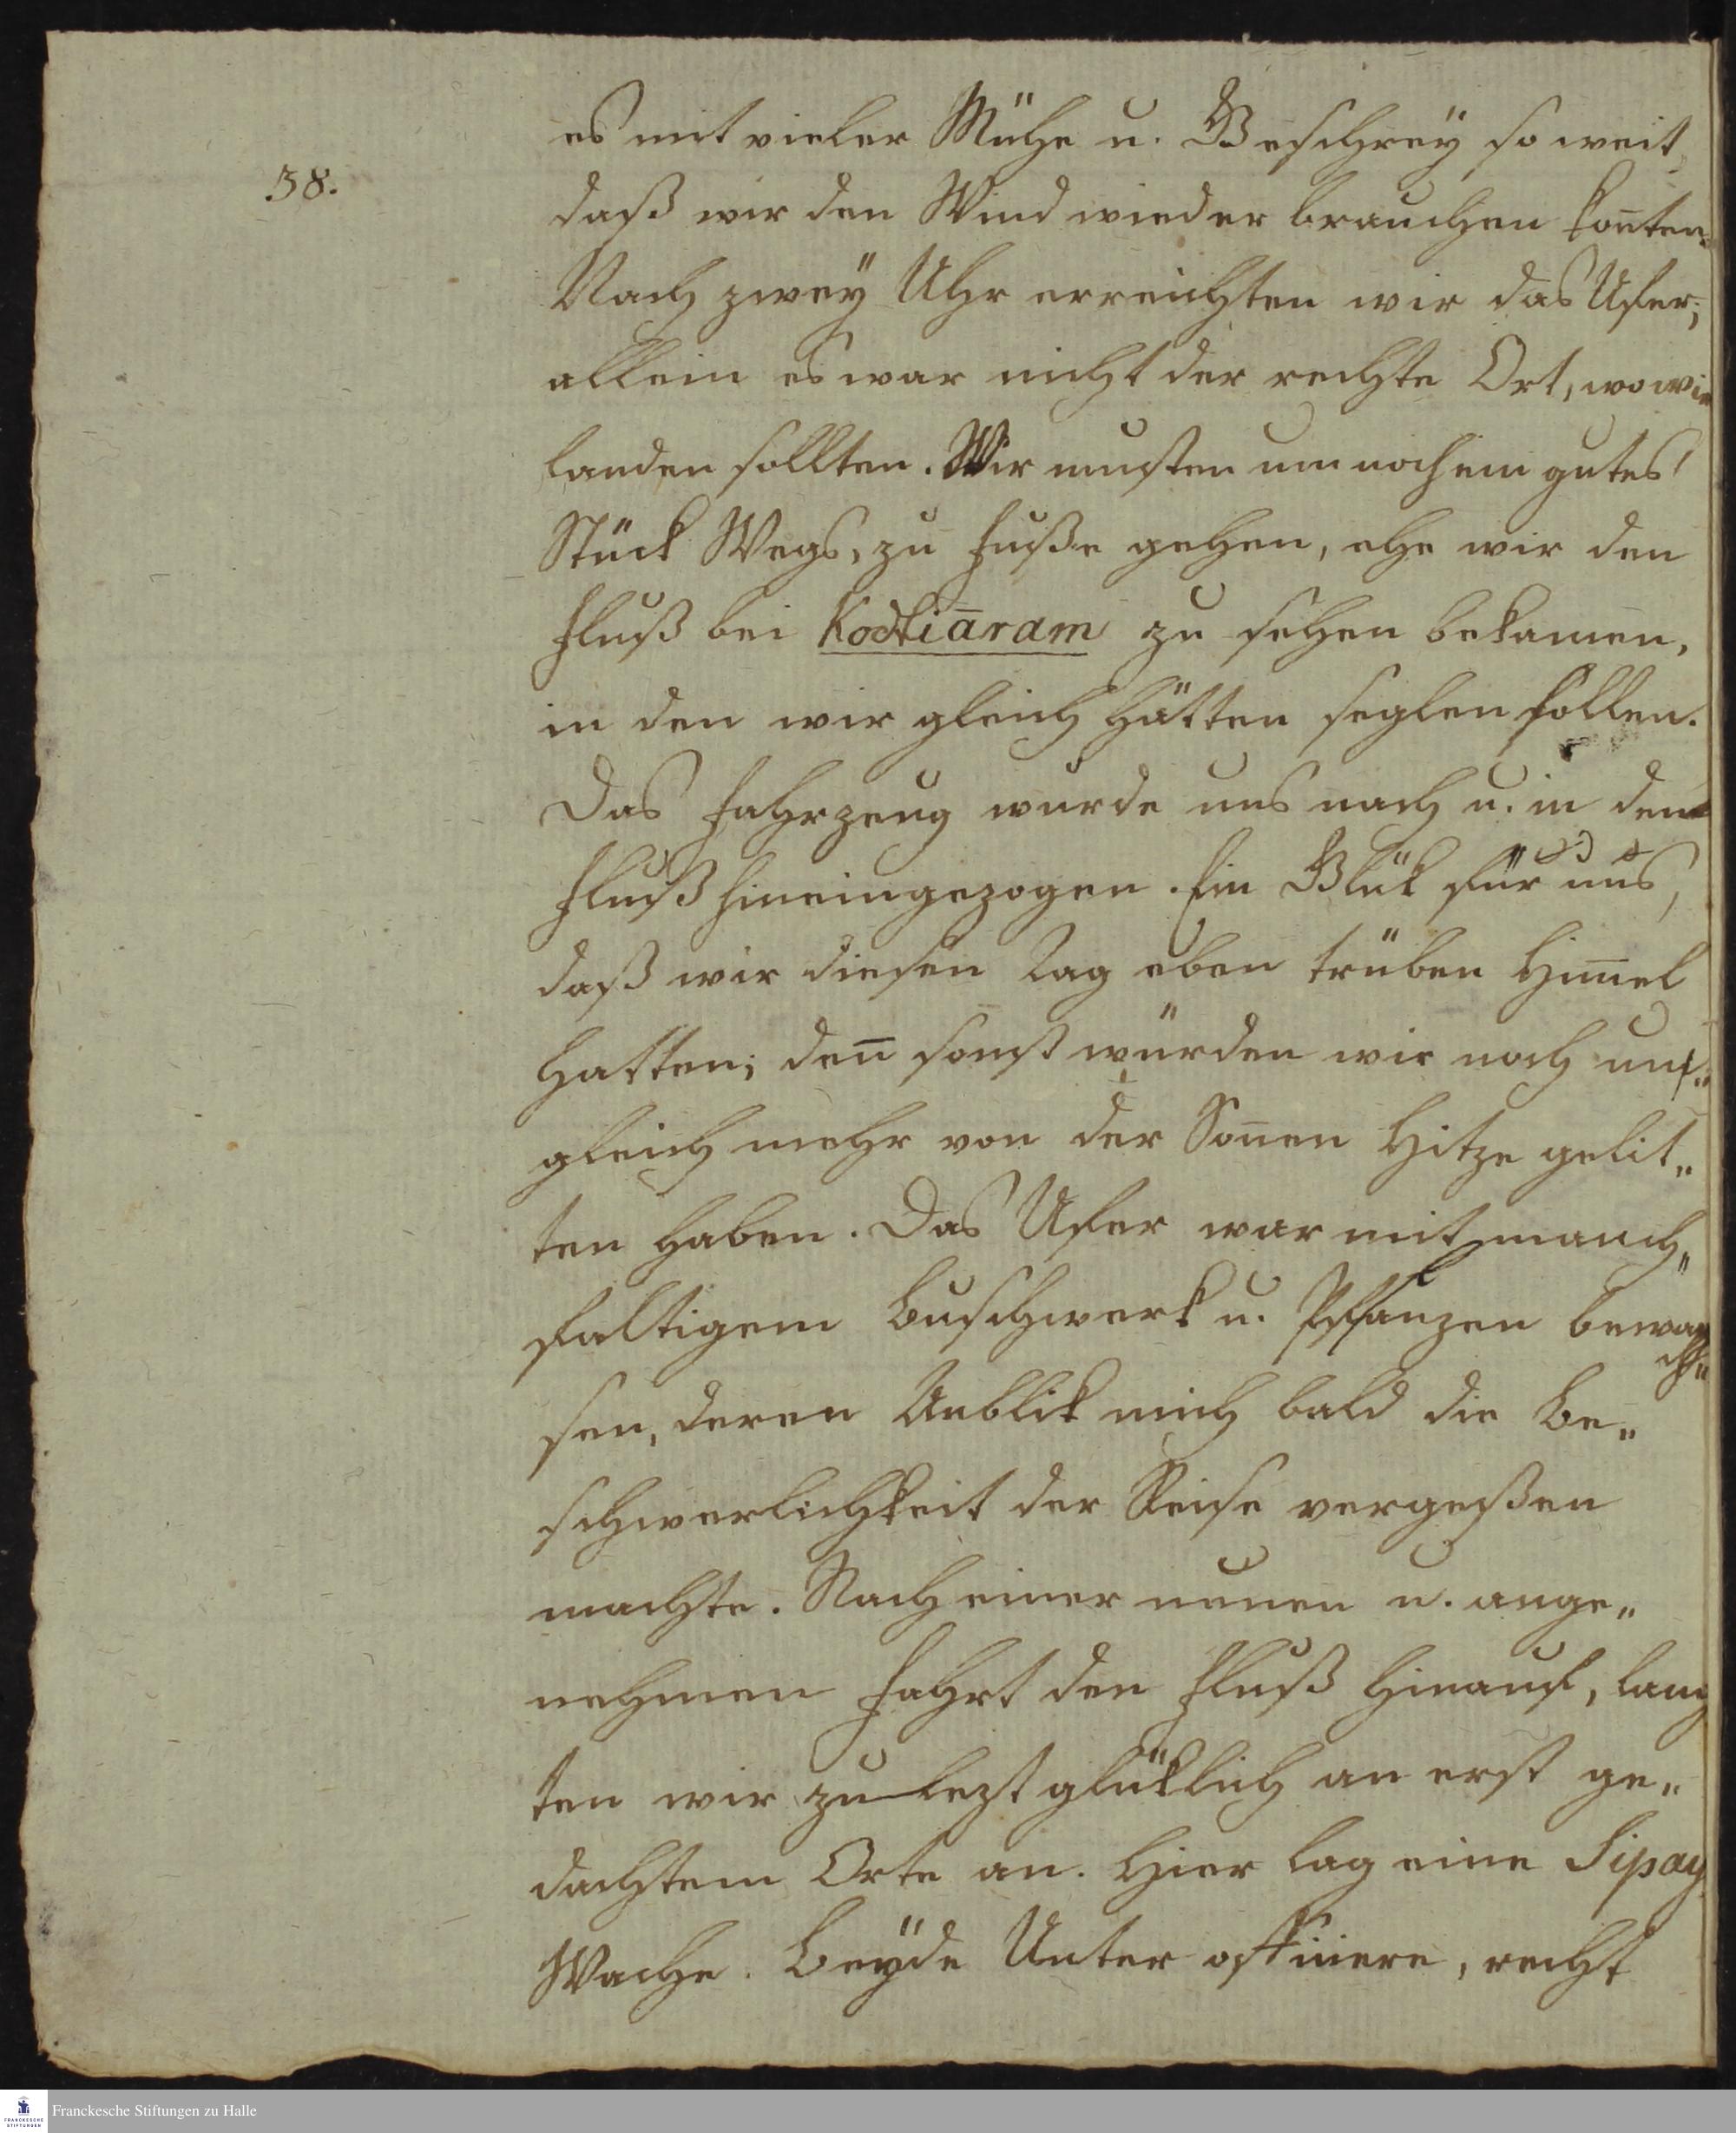 38.
es mit vieler Mühe u. Geschrey so weit,
daß wir den Wind wieder brauchen kon̄ten.
Nach zwey Uhr erreichten wir das Ufer;
allein es war nicht der rechte Ort, wo wir
landen sollten. Wir musten nun noch ein gutes
Stück Wegs, zu Fuße gehen, ehe wir den
Fluß bei Kottiāram zu sehen bekamen,
in den wir gleich hätten seglen sollen.
Das Fahrzeug wurde uns nach u. in den
Fluß hineingezogen. Ein Glük für uns,
daß wir diesen Tag eben trüben Him̄el
hatten; den̄ sonst würden wir noch un„
gleich mehr von der Son̄en Hitze gelit„
ten haben. Das Ufer war mit manch„
faltigem Buschwerk u. Pflanzen bewach„
sen, deren Anblik mich bald die Be„
schwerlichkeit der Reise vergeßen
machte. Nach einer neuen u. ange„
nehmen Fahrt den Fluß hinauf, lang
ten wir zulezt glüklich an erst ge„
dachtem Orte an. Hier lag eine Sipay
Wache. Beyde Unter officiere, recht
Franckesche Stiftungen zu Halle